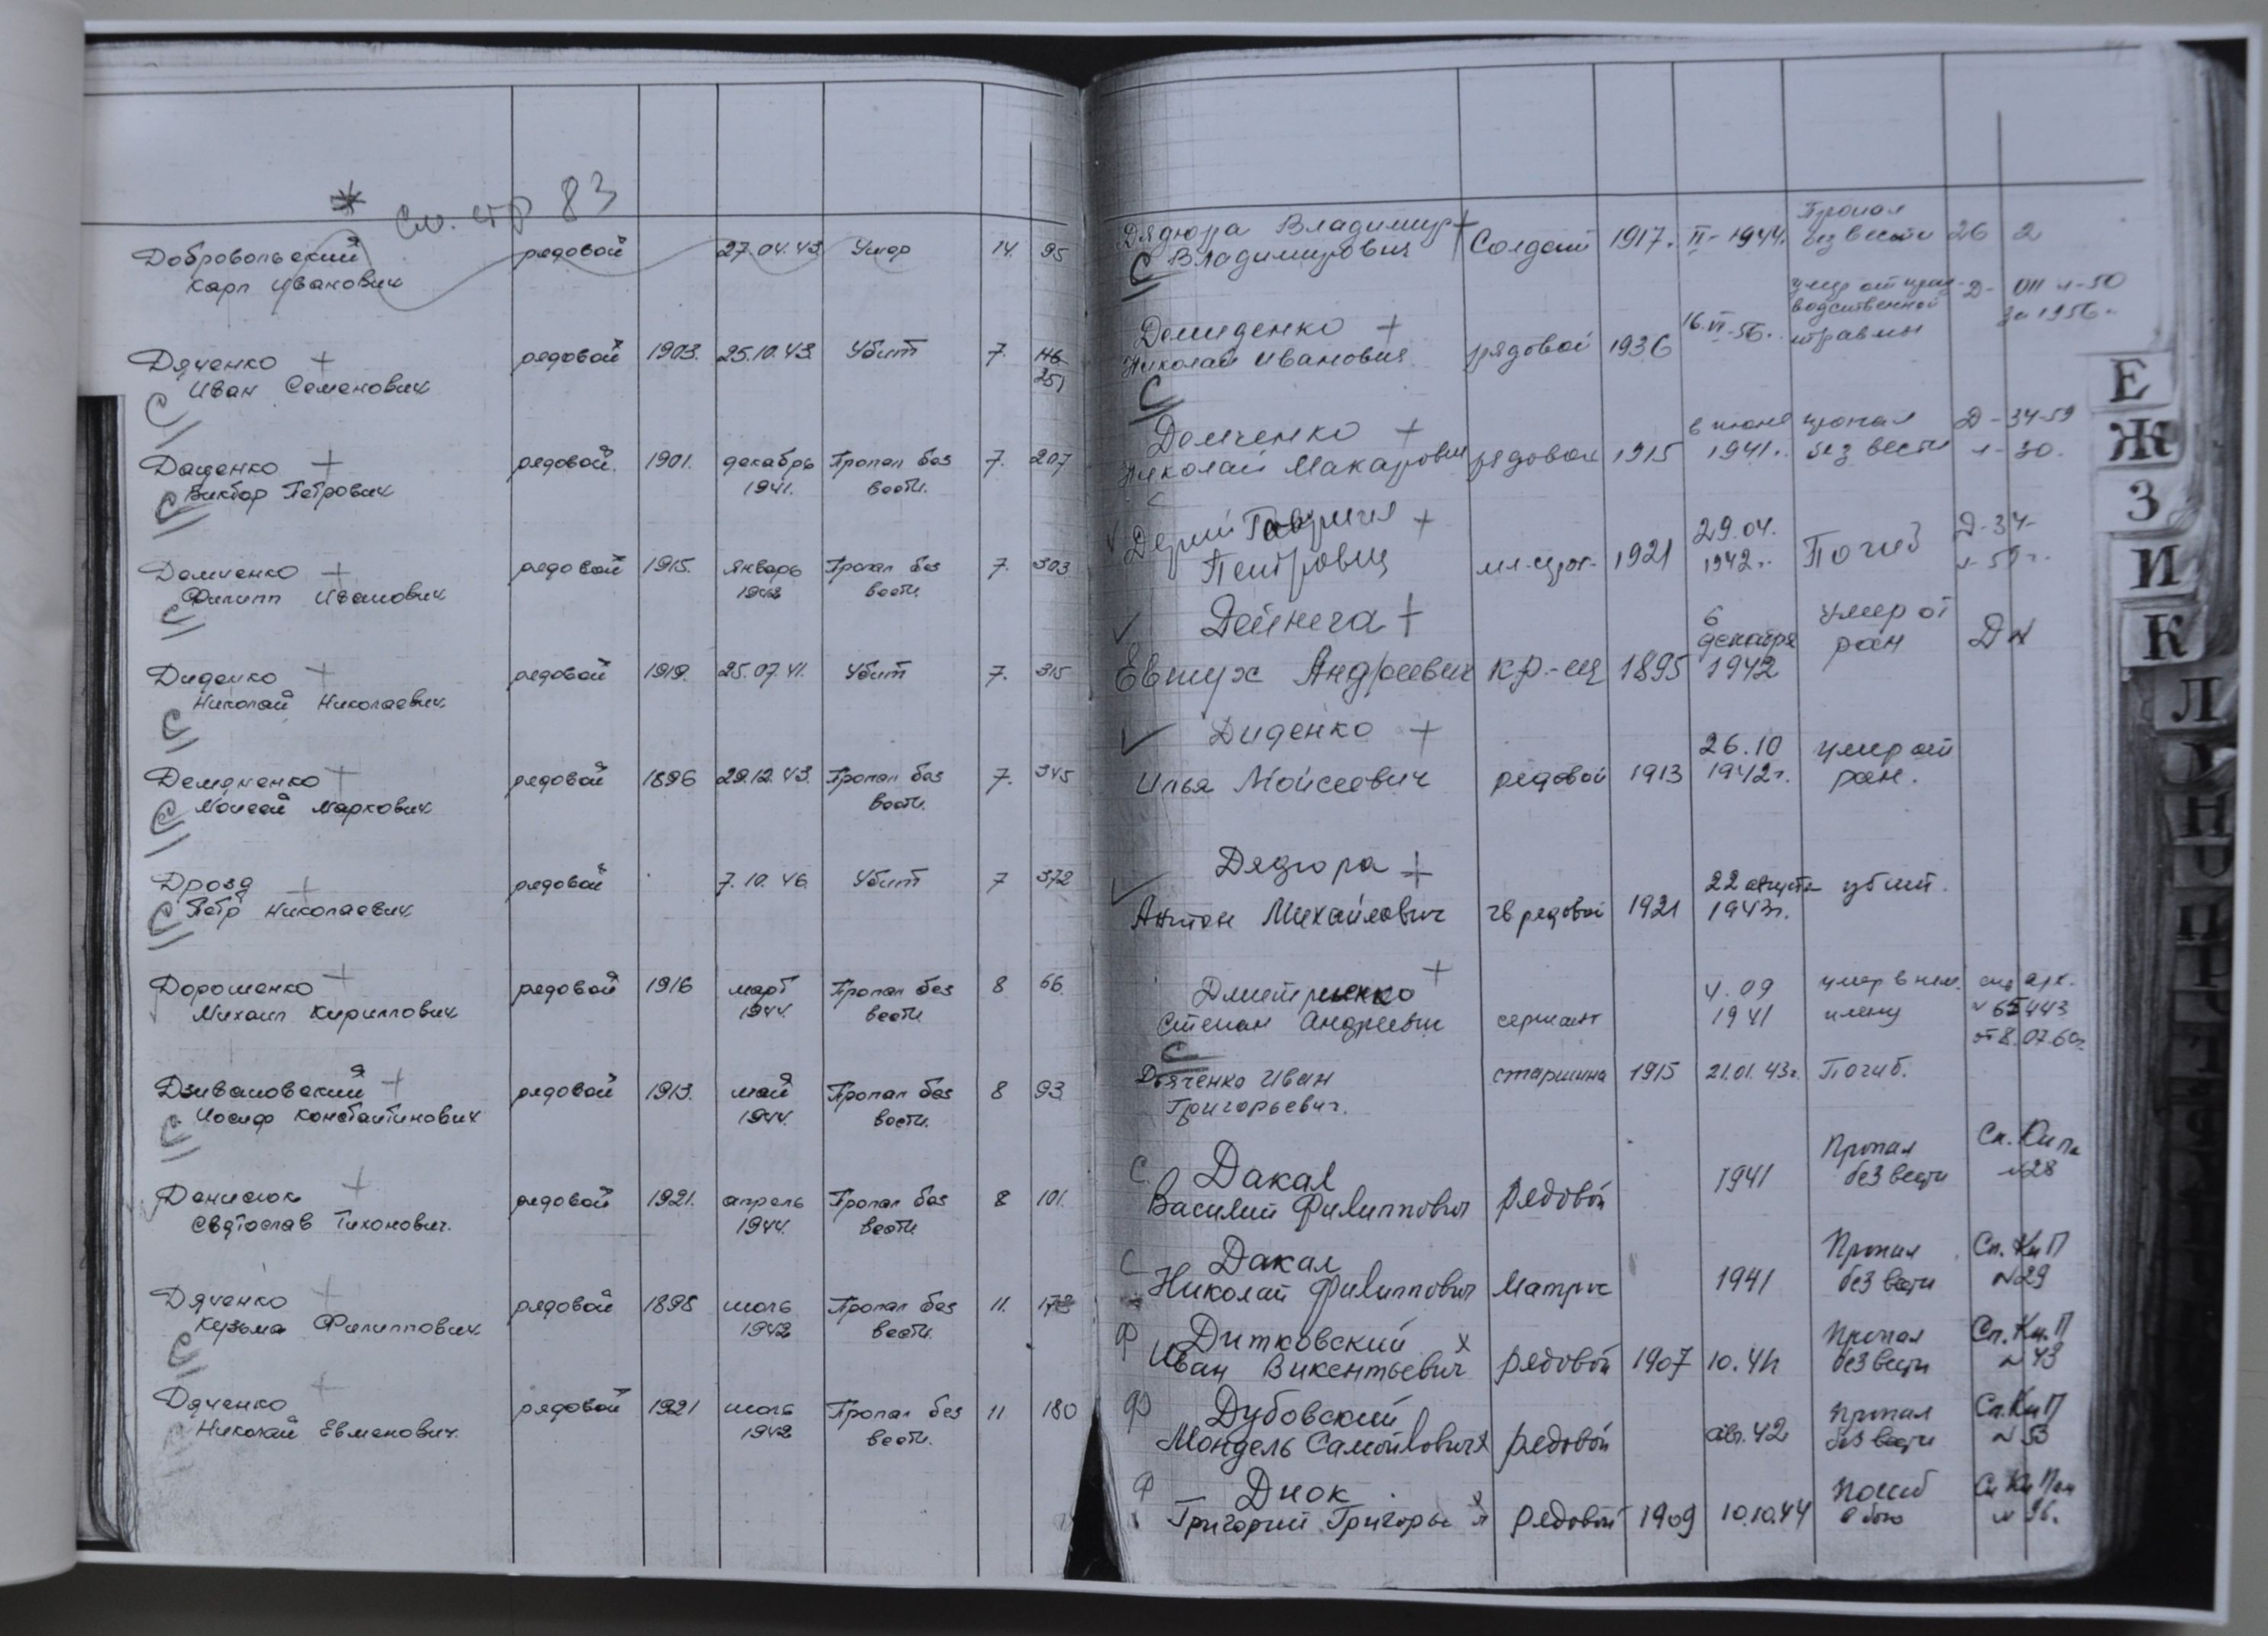 * см. стр 83
Добровольский рядовой 27.04.43 Умер 14. 95
Карп Иванович
Дяченко + рядовой 1903. 25.10.43. Убит 7.
Иван Семенович 251
С
Даценко + рядовой. 1901. декабрь Пропал без 7. 207
Виктор Петрович 1941. вести.
С
Демченко + рядовой 1915. январь Пропал без 7. 303
Филипп Иванович 1942 вести.
С
Диденко + рядовой 1919. 25.07.41. Убит 7. 315
Николай Николаевич
С
Демяненко + рядовой 1896 29.12.43. Пропал без 7. 345
Моисей Маркович вести.
С
Дрозд + рядовой 7.10.46. Убит 7 372
Петр Николаевич
С
Дорошенко + рядовой 1916 март Пропал без 8 66
Михаил Кириллович 1944. вести
Дзивановский + рядовой 1913. май Пропал без 8 93.
Иосиф Константинович 1944. вести.
С
Денисюк + рядовой 1921. апрель Пропал без 8 101.
Святослав Тихонович. 1944. вести
Дяченко + рядовой 1898 июль Пропал без 11.
Кузьма Филиппович 1942 вести.
С
Дяченко + рядовой 1921 июль Пропал без 11 180
Николай Евменович. 1942 вести.
Дядюра Владимир + Солдат 1917. II-1944. Пропал без вести 26 2
С Владимирович
Демиденко + рядовой 1936 16.VI-56. умер от произ-
Николай Иванович водственной травмы Д- л-50
С за 1956г.
Демченко + в июне пропал Д-34-59
Николай Макарович рядовой 1915 1941г. без вести л-30.
Дерий Гаврил + 29.04. Д-34-
Петрович мл.серж. 1921 1942г. Погиб л-59г.
Дейнега + 6 декабря умер от
Евтух Андреевич кр-ец 1895 1942 ран
Диденко + 26.10 умер от
Илья Мойсеевич рядовой 1913 1942г. ран.
Дядюра + 22 августа убит.
Антон Михайлович гв рядовой 1921 1943г.
Дмитриенко + 4.09 умер в нем.
Степан Андреевич сержант 1941 плену № 65443
С от 8.07.60г.
Дьяченко Иван старшина 1915 21.01.43г. Погиб.
Григорьевич.
С Дакал Пропал
Василий Филиппович рядовой 1941 без вести №28
С Дакал Пропал Сп. Кн П
Николай Филиппович Матрос 1941 без вести №29
Ф Дитковский х Пропал Сп. Кн. П
Иван Викентьевич рядовой 1907 10.41 без вести №43
Ф Дубовский Пропал Сп. Кн П
Мондель Самойлович х рядовой авг.42 без вести №53
Ф Диок Погиб
Григорий рядовой 1909 10.10.44 в бою
Е
Ж
З
И
К
Л